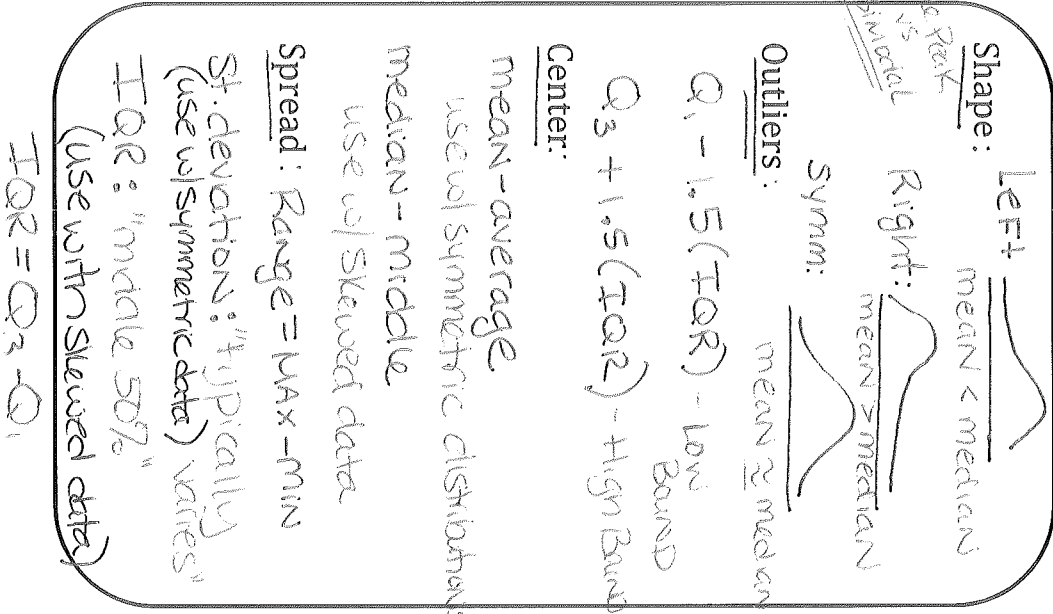 Shape: Left
mean < median
Peak
vs
Bimodal
Right:
mean > median
Symm:
mean ≈ median
Outliers:
Q1 - 1.5(IQR) - Low
Bound
Q3 + 1.5(IQR) - High Bound
Center:
mean-average
use w/ symmetric distributions
median-middle
use w/ skewed data
Spread: Range = MAX-MIN
St. deviation: "typically
(use w/ symmetric data) varies"
IQR: "middle 50%"
(use with skewed data)
IQR = Q3 - Q1